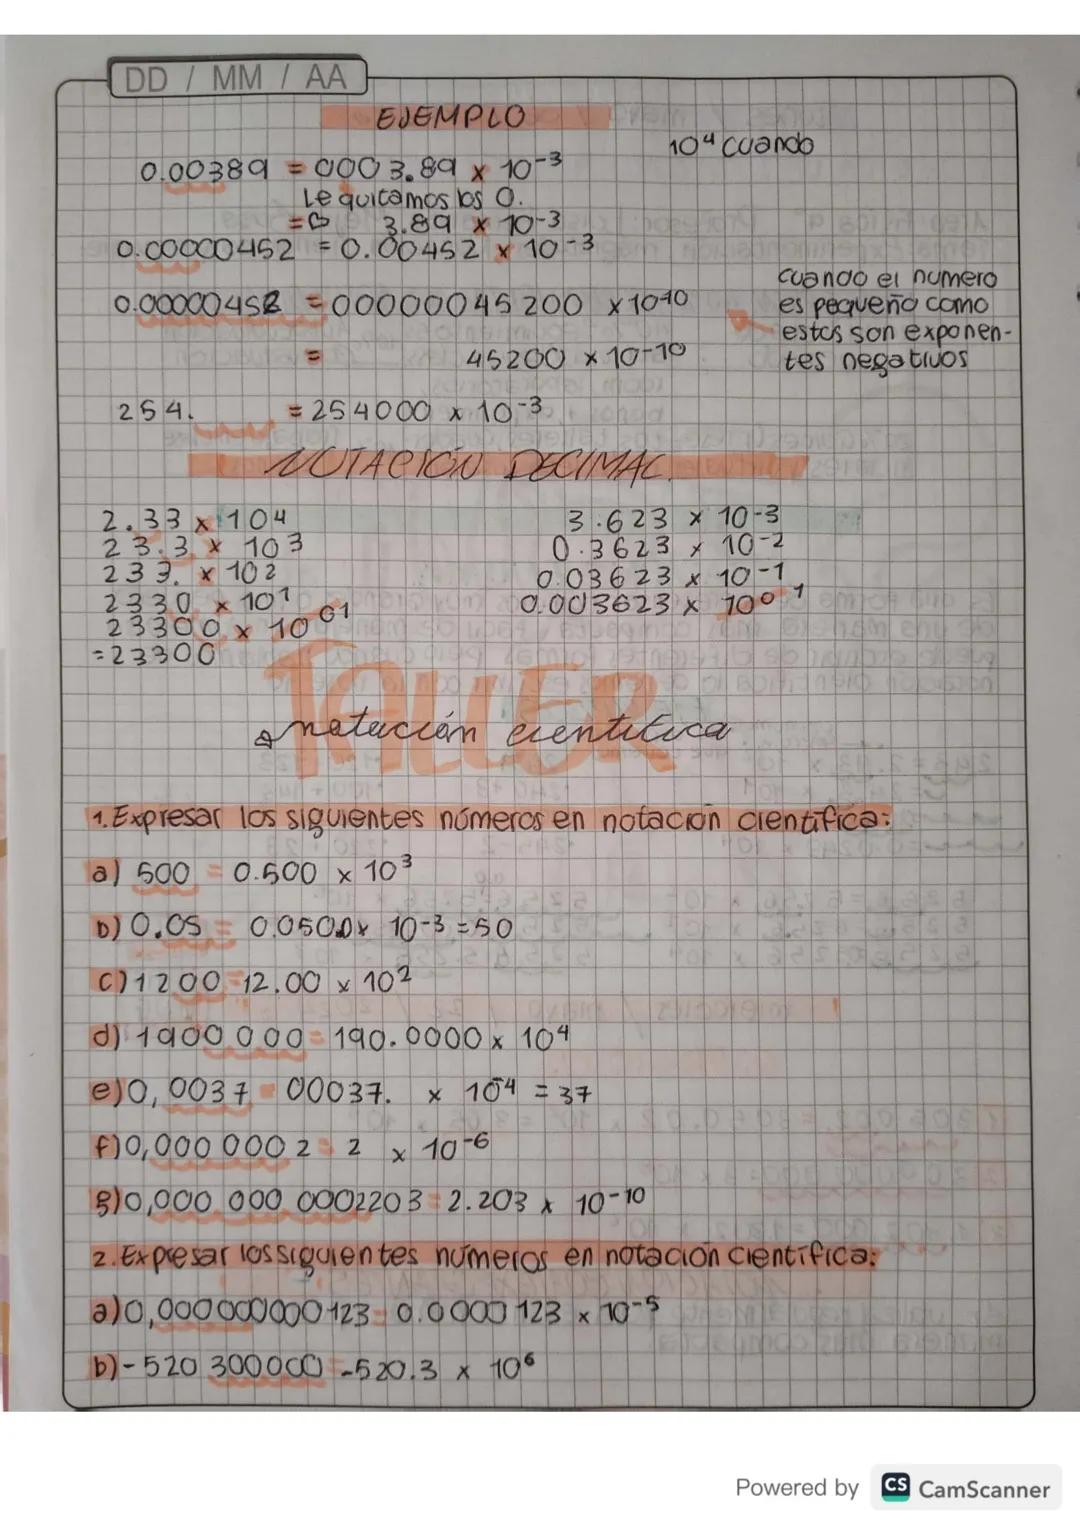 DD / MM / AA
EJEMPLO
10⁴ cuando
0.00389 = 0003.89 x 10⁻³
Le quitamos los 0.
= 3.89 x 10⁻³
0.00000452 = 0.00452 x 10⁻³
cuando el numero
es pequeño como
estos son exponen-
tes negativos
0.00000452 = 00000045200 x 10⁻¹⁰
= 45200 x 10⁻¹⁰
254. = 254000 x 10⁻³
NOTACIÓN DECIMAL
2.33 x 10⁴
23.3 x 10³
233. x 10²
2330 x 10¹
23300 x 10⁰ 1
=23300
3.623 x 10⁻³
0.3623 x 10⁻²
0.03623 x 10⁻¹
0.003623 x 10⁰ 1
TALLER
notación cientifica
1. Expresar los siguientes números en notación científica:
a) 500 = 0.500 x 10³
b) 0.05 = 0.0500 x 10⁻³ = 50
c) 1200 = 12.00 x 10²
d) 1900 000 = 190.0000 x 10⁴
e) 0,0037 = 00037. x 10⁻⁴ = 37
f) 0,000 000 2 = 2 x 10⁻⁶
g) 0,000 000 0002203 = 2.203 x 10⁻¹⁰
2. Expresar los siguientes números en notación científica:
a) 0,000000000123 = 0.0000123 x 10⁻⁵
b) -520 300000 = -520.3 x 10⁶
Powered by CS CamScanner